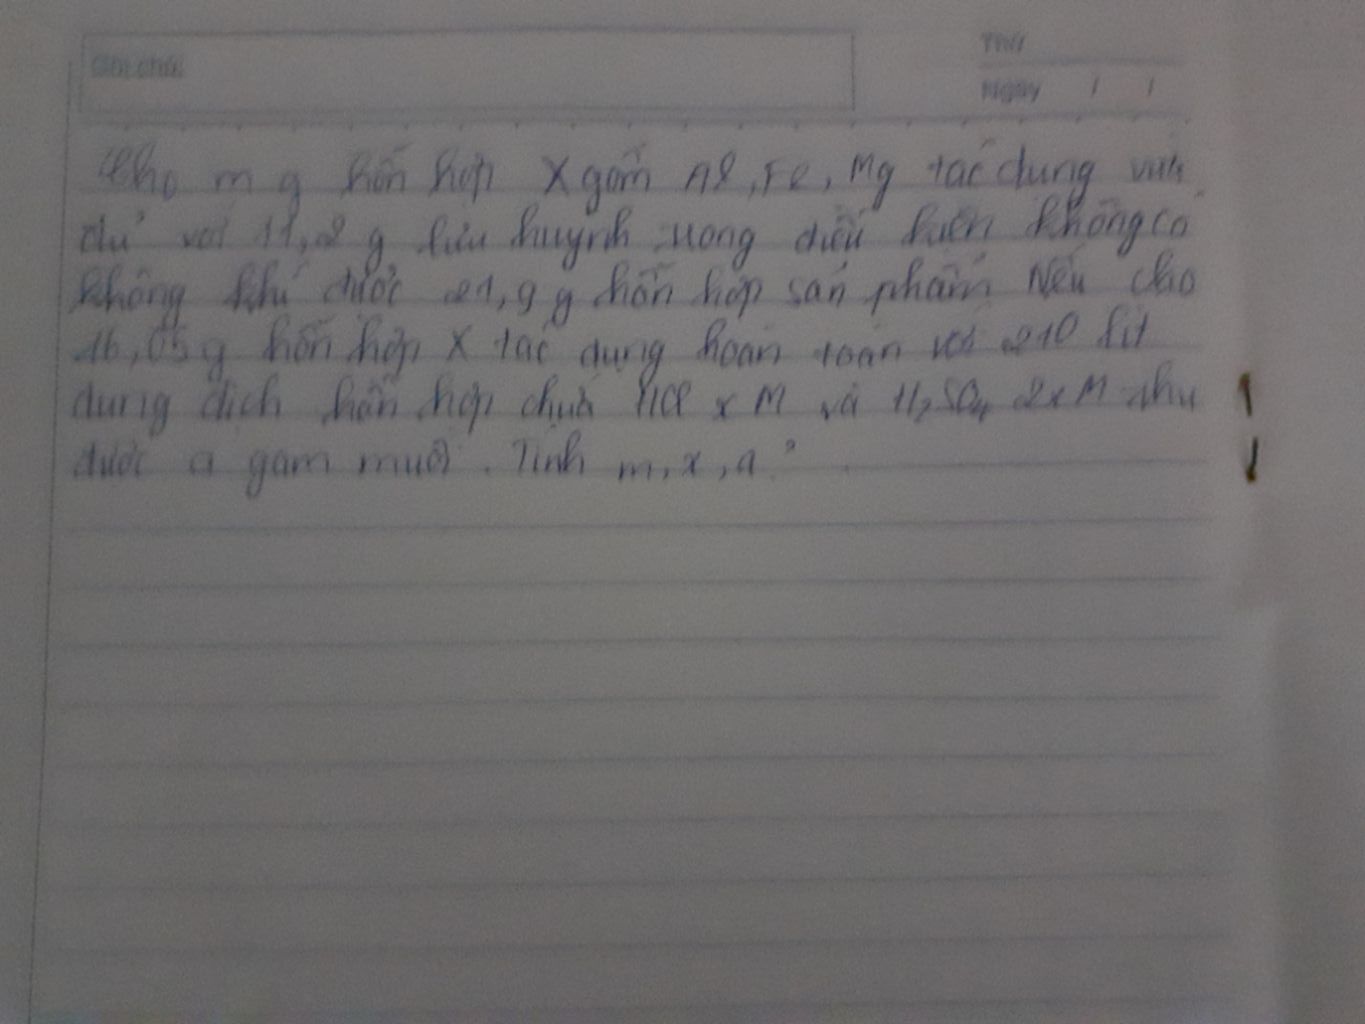 Ghi chú:
Thứ
Ngày / /
Cho m g hỗn hợp X gồm Al, Fe, Mg tác dụng vừa
đủ với 11,2 g lưu huỳnh trong điều kiện không có
không khí được 21,9 g hỗn hợp sản phẩm. Nếu cho
16,05 g hỗn hợp X tác dụng hoàn toàn với 210 lít
dung dịch hỗn hợp chứa HCl x M và H₂SO₄ 2x M thu
được a gam muối. Tính m, x, a ?